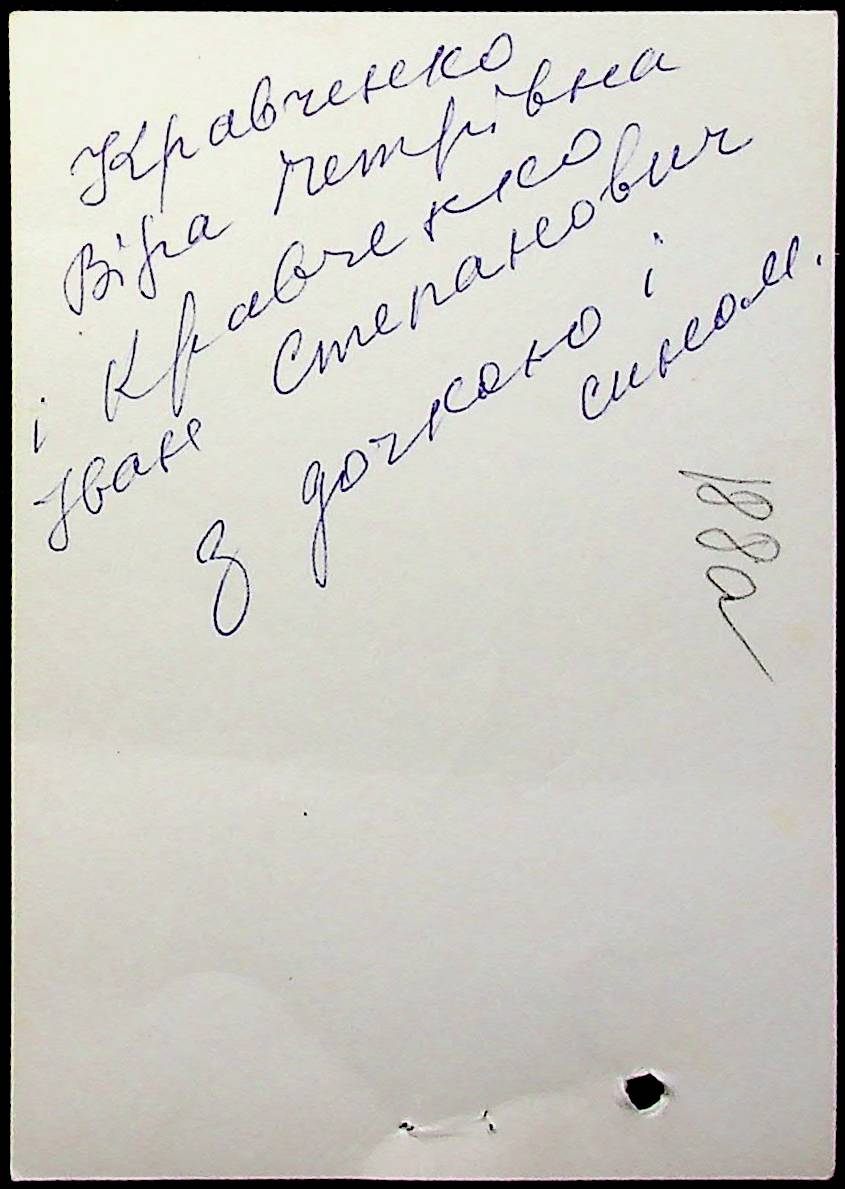 Кравченко
Віра Петрівна
і Кравченко
Іван Степанович
з дочкою і
сином.
188а